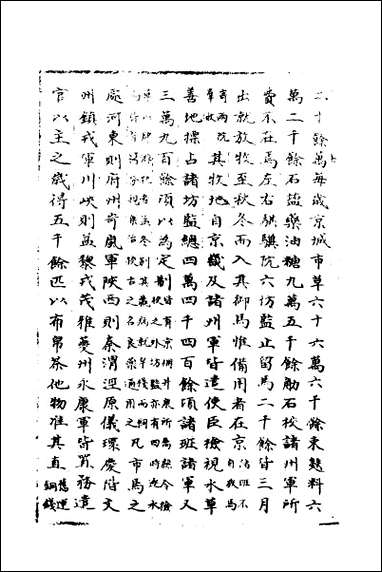 二十餘萬每歲京城市草六十六萬六千餘束麩料六
萬二千餘石鹽藥油糖九萬五千餘觔石校諸州軍所
費不在焉左右騏驥院六坊監止留馬二千餘皆三月
出就放牧至秋冬而入其御馬惟備用者在京
其牧地自京畿及諸州軍皆遣使臣檢視水草
善地摽占諸坊監總四萬四千四百餘頃諸班諸軍又
三萬九百餘頃以為定制
凡市馬之
處河東則府州岢嵐軍陝西則秦渭涇原儀環慶階文
州鎮戎軍川峽則益黎戎茂雅夔州永康軍皆置務遣
官以主之歲得五千餘匹以布帛茶他物准其直舊運銅錢